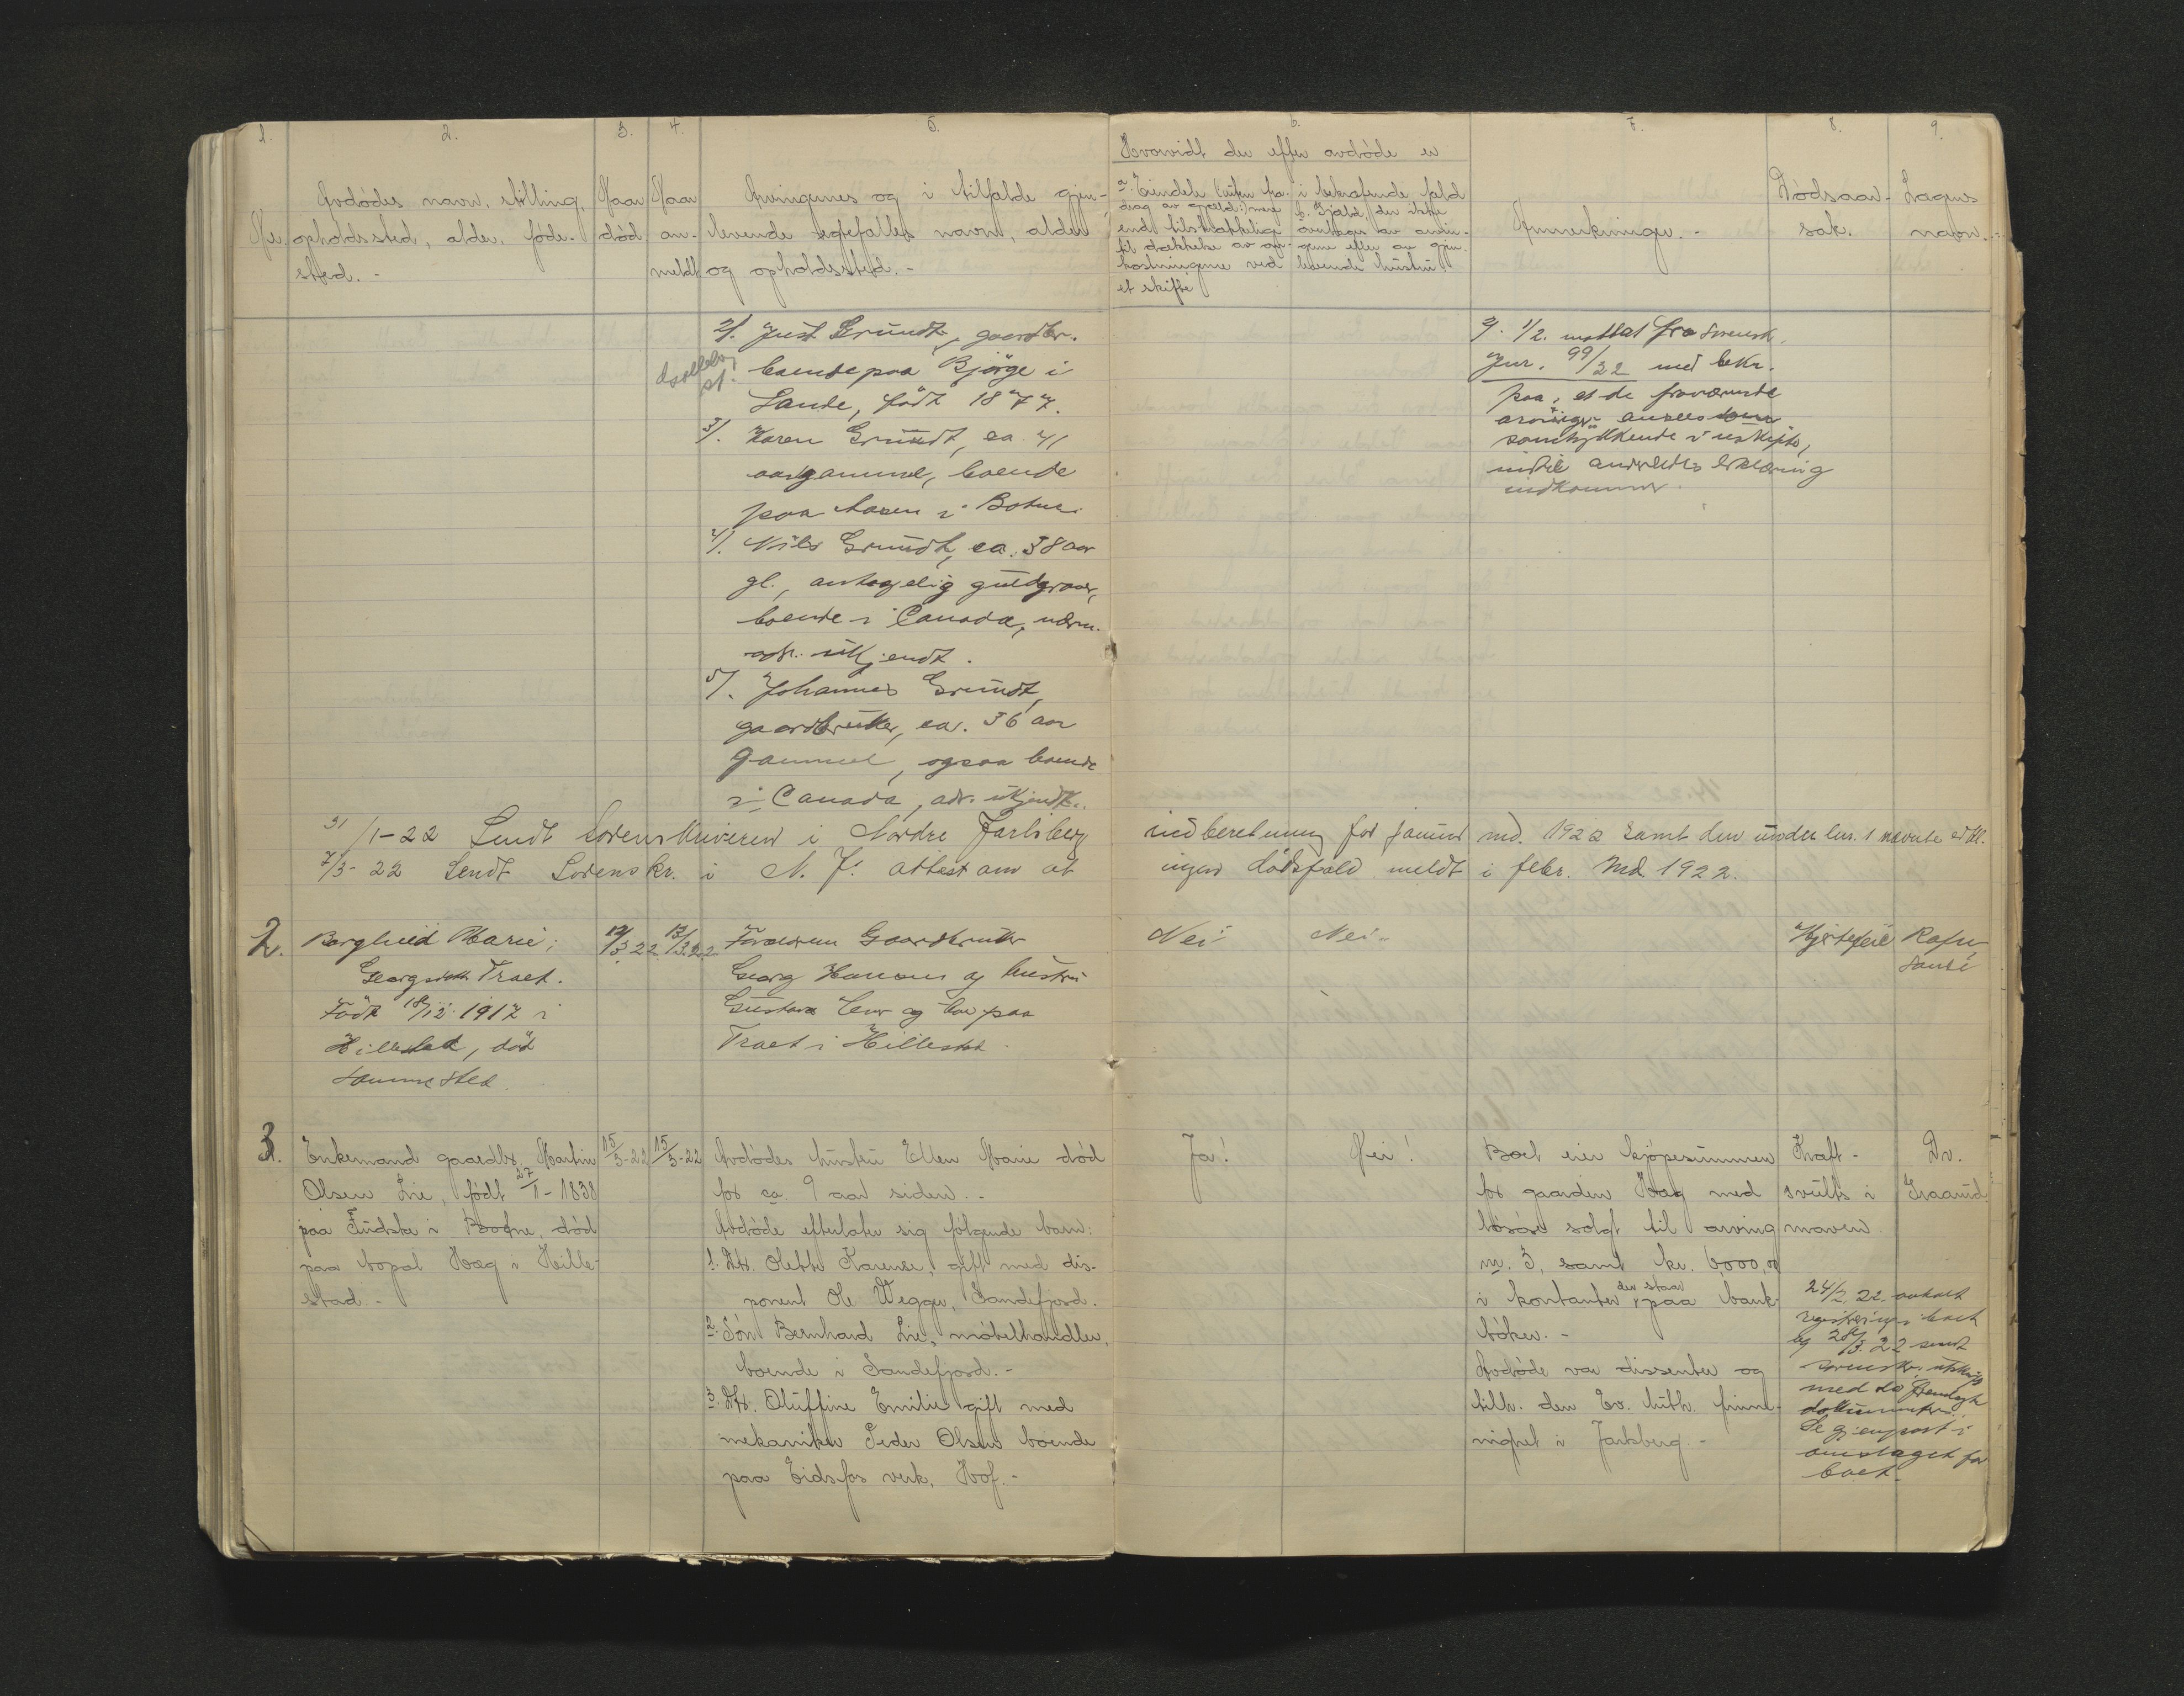 1. 2. 3. 4. 5. 6. 7. 8. 9.
Nr.
Avdødes navn, stilling,
opholdssted, alder, føde-
sted. -
Naar
død
Naar
an-
meldt
Arvingernes og i tilfælde gjen-
levende egtefælles navn, alder
og opholdssted. -
Hvorvidt der efter avdøde er
a. Eiendele (uten fra-
drag av gjæld) mere
end tilstrækkelige
til dækkelse av om-
kostningerne ved
et skifte
i bekræftende fald
b. Gjæld, der ikke
overtages av arvin-
gerne eller av gjen-
levende hustru
Anmerkninger. -
Dødsaar-
sak.
Lægens
navn. -
2/. Just Grundt, gaardbr.
boende paa Bjørge i
Sande, født 1877.
3/. Karen Grundt, ca. 41
aar gammel, boende
paa Aasen i Botne.
4/. Nils Grundt, ca. 38 aar
gl., antagelig guldgraver,
boende i Canada, nærm.
adr. ukjendt.
5/. Johannes Grundt,
gaardbruker, ca. 36 aar
gammel, ogsaa boende
i Canada, adr. ukjendt.
2/. 1/2. mottat fra sorensk.
Jnr. 99/22 med bekr.
paa, at de fraværende
arvinger ansees som
samtykkende i uskifte,
indtil anderledes erklæring
indkommer.
31/1-22 Sendt Sorenskriveren i Nordre Jarlsberg indberetning for januar md. 1922 samt den under lnr. 1 nævnte erkl.
7/3-22 Sendt Sorenskr. i N. J. attest om at ingen dødsfald meldt i febr. md. 1922.
2.
Borghild Marie
Georgsdtr. Traet.
Født 18/12 1917 i
Hillestad, død
sammested.
12/3 22
13/3 22
Forældrene Gaardbruker
Georg Hansen og hustru
Gustava lever og bor paa
Traet i Hillestad.
Nei
Nei
Hjertefeil
Rafn,
Sande
3.
Enkemand gaardbr. Martin
Olsen Lie, født 27/1-1838
paa i Botne, død
paa Hæg i Hille-
stad. -
15/3-22
15/3-22
Avdødes hustru Ellen Marie død
for ca. 9 aar siden. -
Avdøde efterlater sig følgende barn:
1. Dtr. Olette Karense, gift med dis-
ponent Ole Wegger, Sandefjord.
2. Søn Bernhard Lie, møbelhandler,
boende i Sandefjord. -
3. Dtr. Oluffine Emilie gift med
mekaniker Peder Olsen boende
paa Eidsfos verk, Hof. -
Ja!
Nei!
Boet eier kjøpesummen
for gaarden Hæg med
løsøre solgt til arving
nr. 3, samt kr. 6,000,00
i kontanter der staar paa bank-
bøker. -
Avdøde var dissenter og
tilh. den Ev. luth. frime-
nighet i Jarlsberg. -
Kræft-
svulst i
maven.
Dr.
Graarud
24/3. 22. avholdt
registrering i boet
og 28/3. 22 sendt
sorenskr. utskrift
med de fremlagte
dokumenter.
Se gjenpart i
omslaget for
boet.